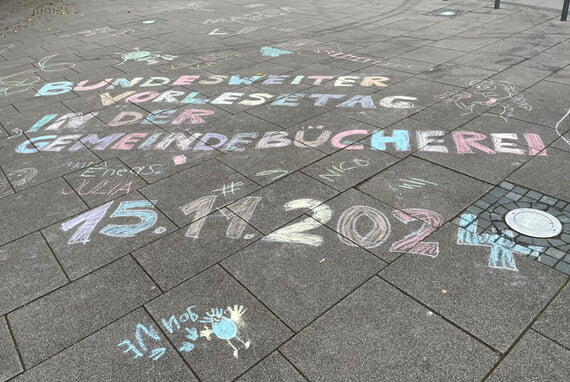 BUNDESWEITER
VORLESETAG
IN DER
GEMEINDEBÜCHEREI!
Eneas
JULIA
NICO
#
15.11.2024